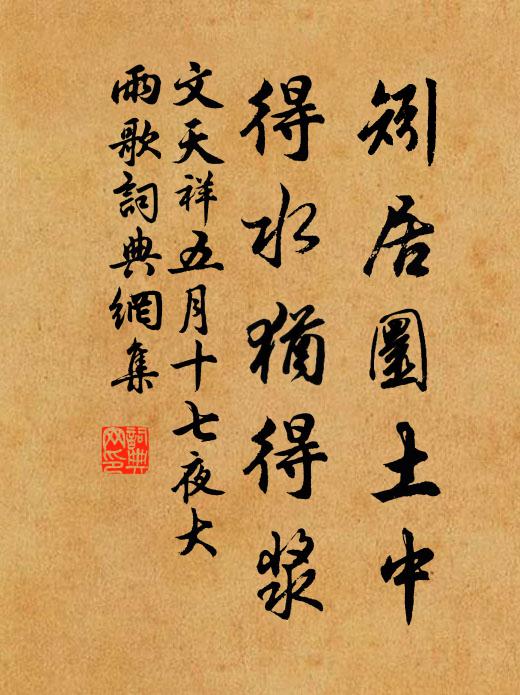 矧居圜土中
得水猶得漿
文天祥五月十七夜大
雨歌詞典網集
詞典
网印